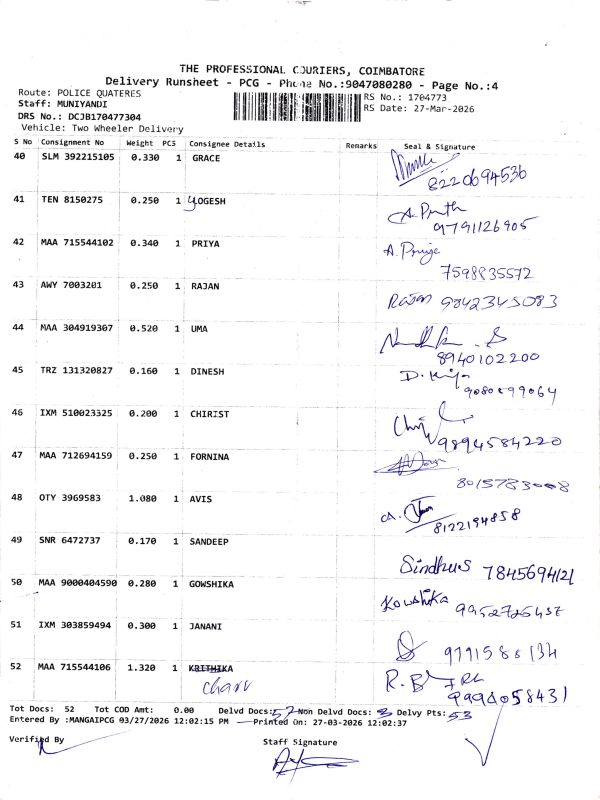 THE PROFESSIONAL COURIERS, COIMBATORE
Delivery Runsheet - PCG - Phone No.:9047080280 - Page No.:4
Route: POLICE QUATERES
Staff: MUNIYANDI
RS No.: 1704773
DRS No.: DCJB170477304
RS Date: 27-Mar-2026
Vehicle: Two Wheeler Delivery
S No Consignment No Weight PCS Consignee Details Remarks Seal & Signature
40 SLM 392215105 0.330 1 GRACE
8220694536
41 TEN 8150275 0.250 1 YOGESH
9791126905
42 MAA 715544102 0.340 1 PRIYA A. Priya
7598835572
43 AWY 7003201 0.250 1 RAJAN Rajan 9842345083
44 MAA 304919307 0.520 1 UMA
8940102200
45 TRZ 131320827 0.160 1 DINESH
46 IXM 510023325 0.200 1 CHIRIST
9894584220
47 MAA 712694159 0.250 1 FORNINA
48 OTY 3969583 1.080 1 AVIS
8122194858
49 SNR 6472737 0.170 1 SANDEEP Sindhu's 7845694121
50 MAA 9000404590 0.280 1 GOWSHIKA Kowshika
51 IXM 303859494 0.300 1 JANANI
52 MAA 715544106 1.320 1 KRITHIKA R.B
9994058431
Tot Docs: 52 Tot COD Amt: 0.00 Delvd Docs: 52 Non Delvd Docs: Delvy Pts: 53
Entered By :MANGAIPCG 03/27/2026 12:02:15 PM Printed On: 27-03-2026 12:02:37
Verified By Staff Signature